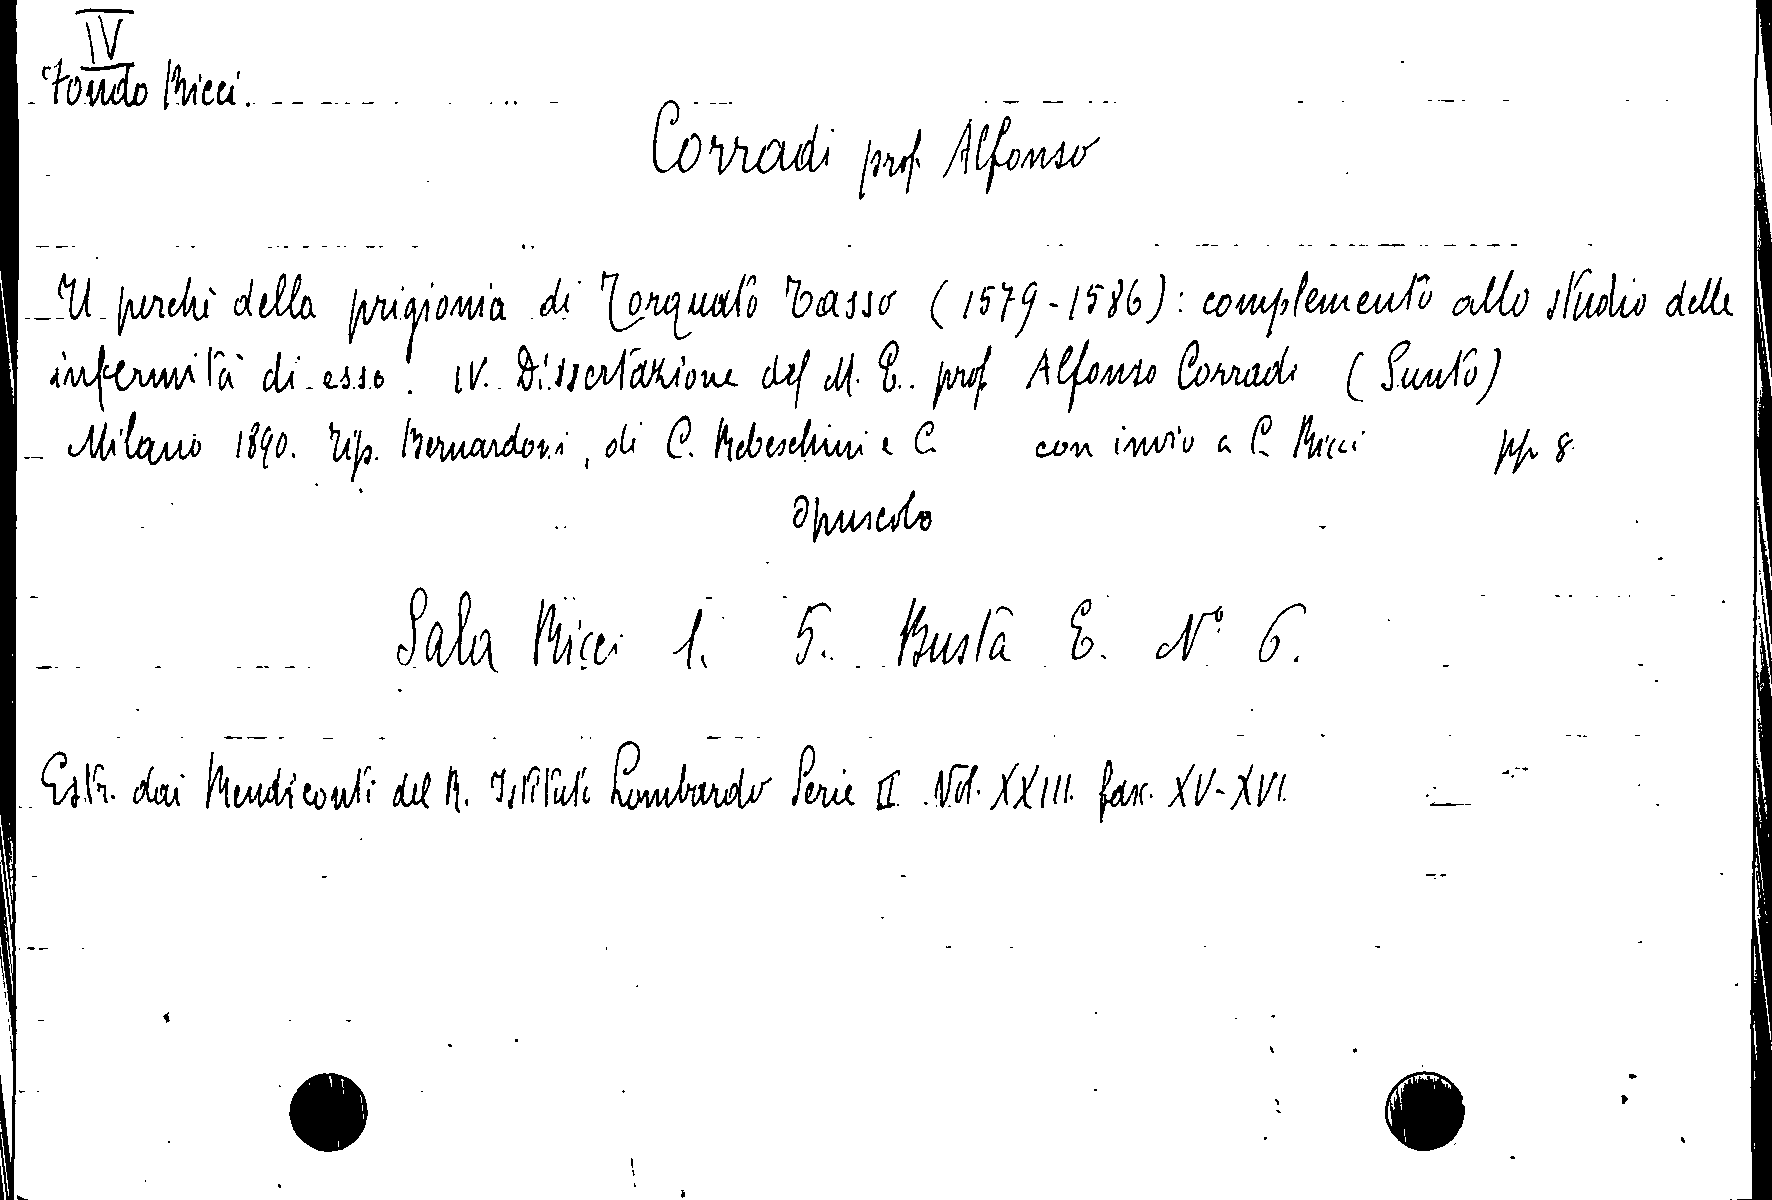 IV
Fondo Ricci.
Corradi prof. Alfonso
Il perchè della prigionia di Torquato Tasso (1579-1586): complemento allo studio delle
infermità di esso. IV. Dissertazione del M. E. prof. Alfonso Corradi (Sunto)
Milano 1890. Tip. Bernardoni, di C. Rebeschini e C. con invio a C. Ricci pp 8.
Opuscolo
Sala Ricci 1. 5. Busta E. N° 6.
Estr. dai Rendiconti del R. Istituto Lombardo Serie II. Vol. XXIII. fasc. XV-XVI.